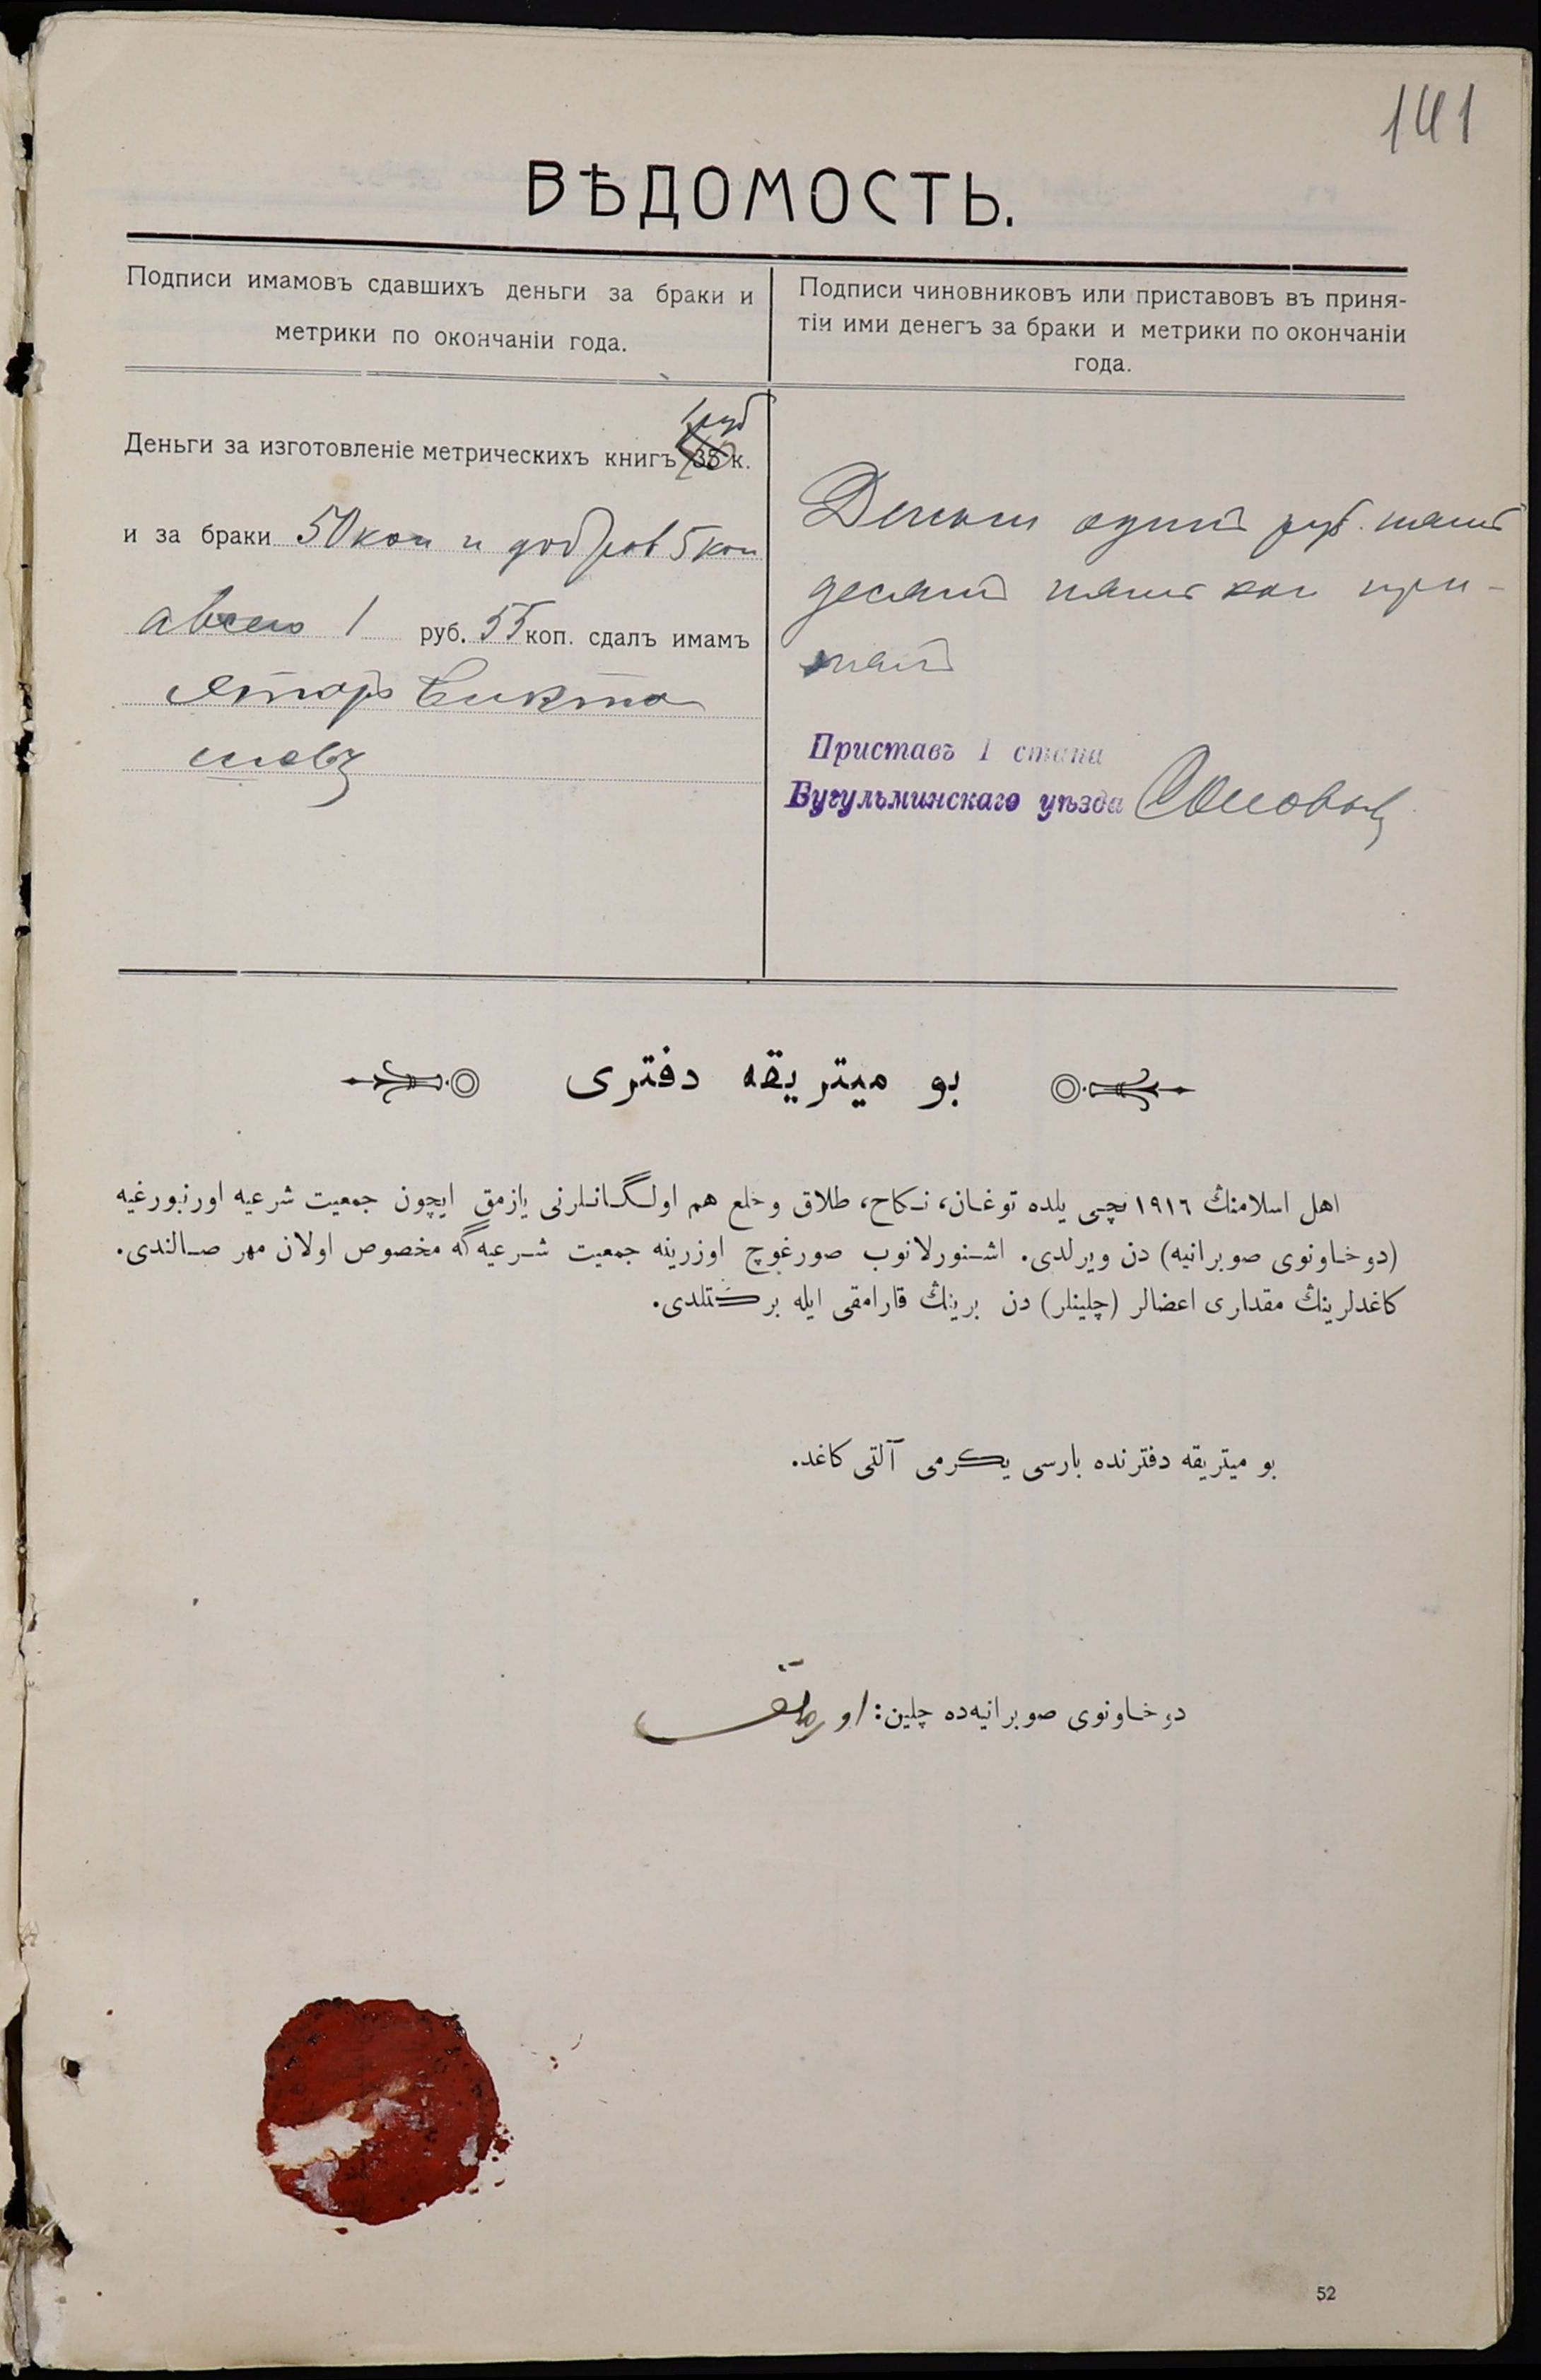 141
ВѢДОМОСТЬ.
Подписи имамовъ сдавшихъ деньги за браки и
метрики по окончаніи года.
Подписи чиновниковъ или приставовъ въ приня-
тіи ими денегъ за браки и метрики по окончаніи
года.
1 руб
Деньги за изготовленіе метрическихъ книгъ 35 к.
и за браки 50 коп и добров 5 коп
а всего 1 руб. 55 коп. сдалъ имамъ
Бикта
шевъ
Деньги одинъ руб. пять
десятъ пять коп при-
нялъ
Приставъ 1 стана
Бугульминскаго уѣзда
بو ميتريقه دفترى
اهل اسلامنڭ ١٩١٦ نچى يلده توغان، نكاح، طلاق وخلع هم اولگانلرنى يازمق ايچون جمعيت شرعيه اورنبورغيه
(دوخاونوى صوبرانيه) دن ويرلدى. اشنورلانوب صورغوچ اوزرينه جمعيت شرعيه‌گه مخصوص اولان مهر صالندى.
كاغدلرينڭ مقدارى اعضالر (چلينلر) دن برينڭ قارامقى ايله بركتلدى.
بو ميتريقه دفترنده بارسى يكرمى آلتى كاغد.
دوخاونوى صوبرانيه‌ده چلين:
52